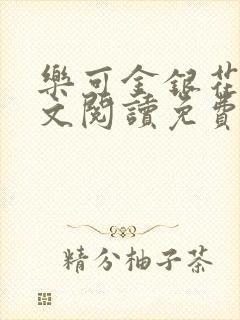 樂可金銀花
文閱讀免費
精分柚子茶